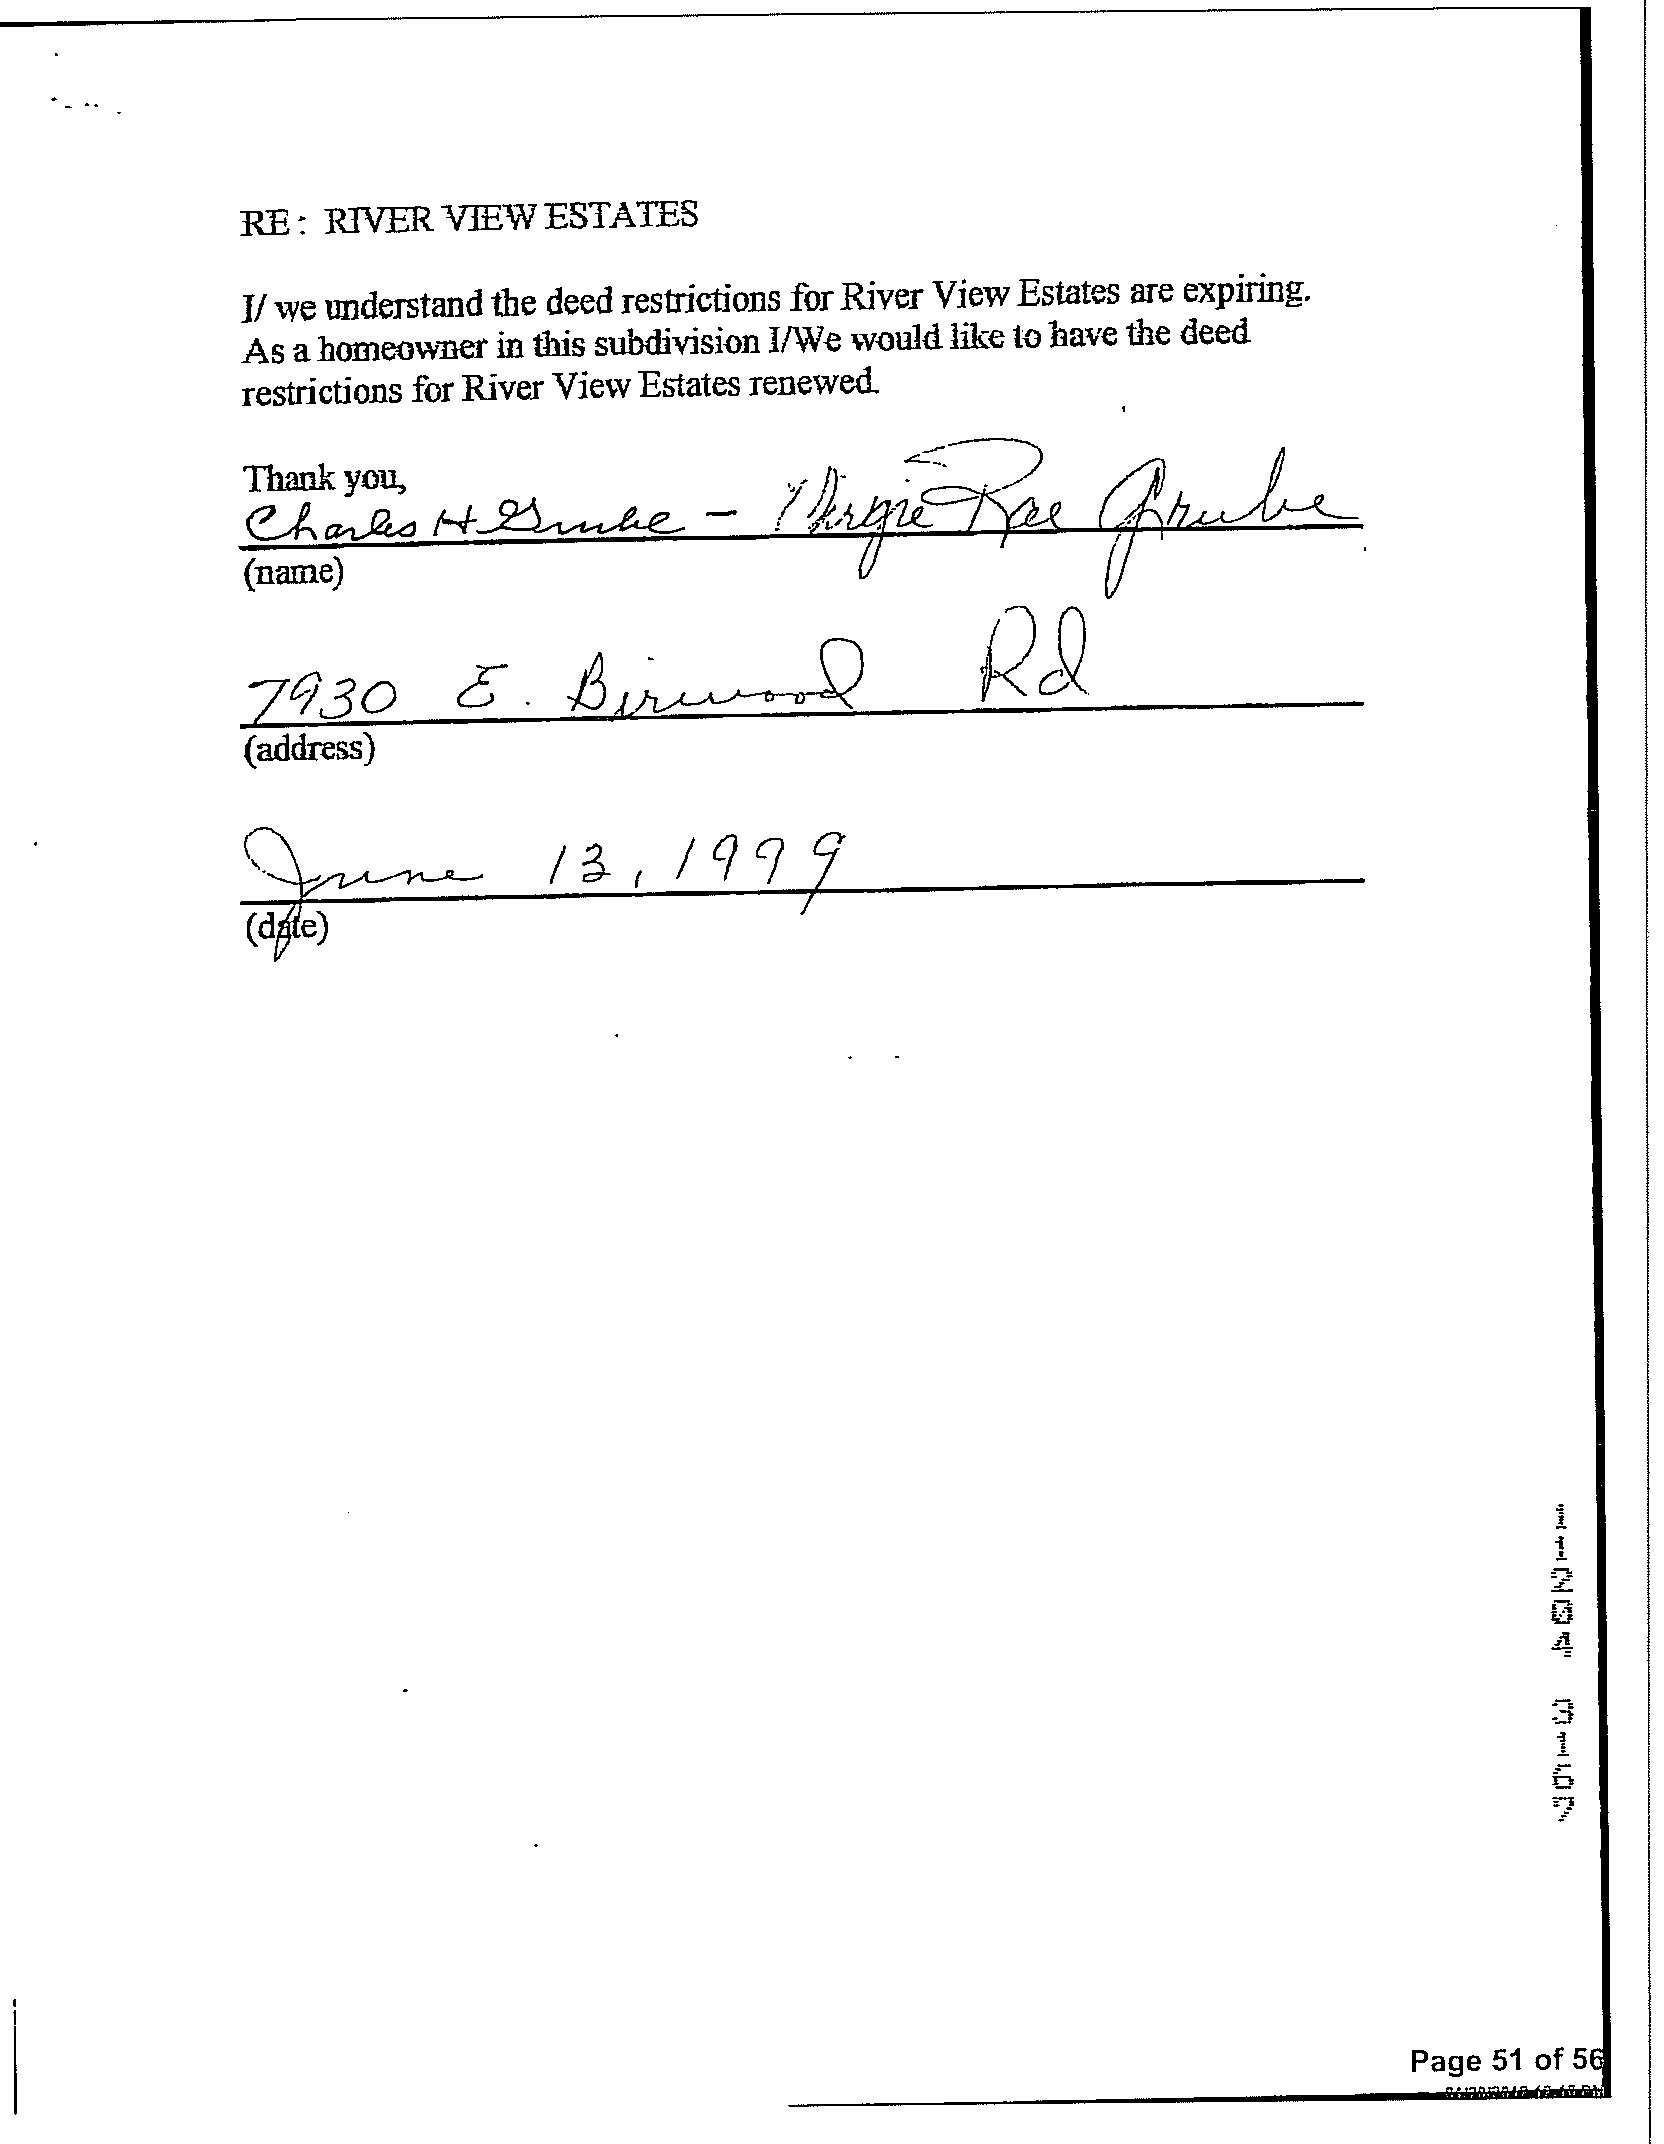 RE: RIVER VIEW ESTATES
I/ we understand the deed restrictions for River View Estates are expiring.
As a homeowner in this subdivision I/We would like to have the deed
restrictions for River View Estates renewed.
Thank you,
Charles H Grube - Virgie Rae Grube
(name)
7930 E. Birwood Rd
(address)
June 13, 1999
(date)
Page 51 of 56